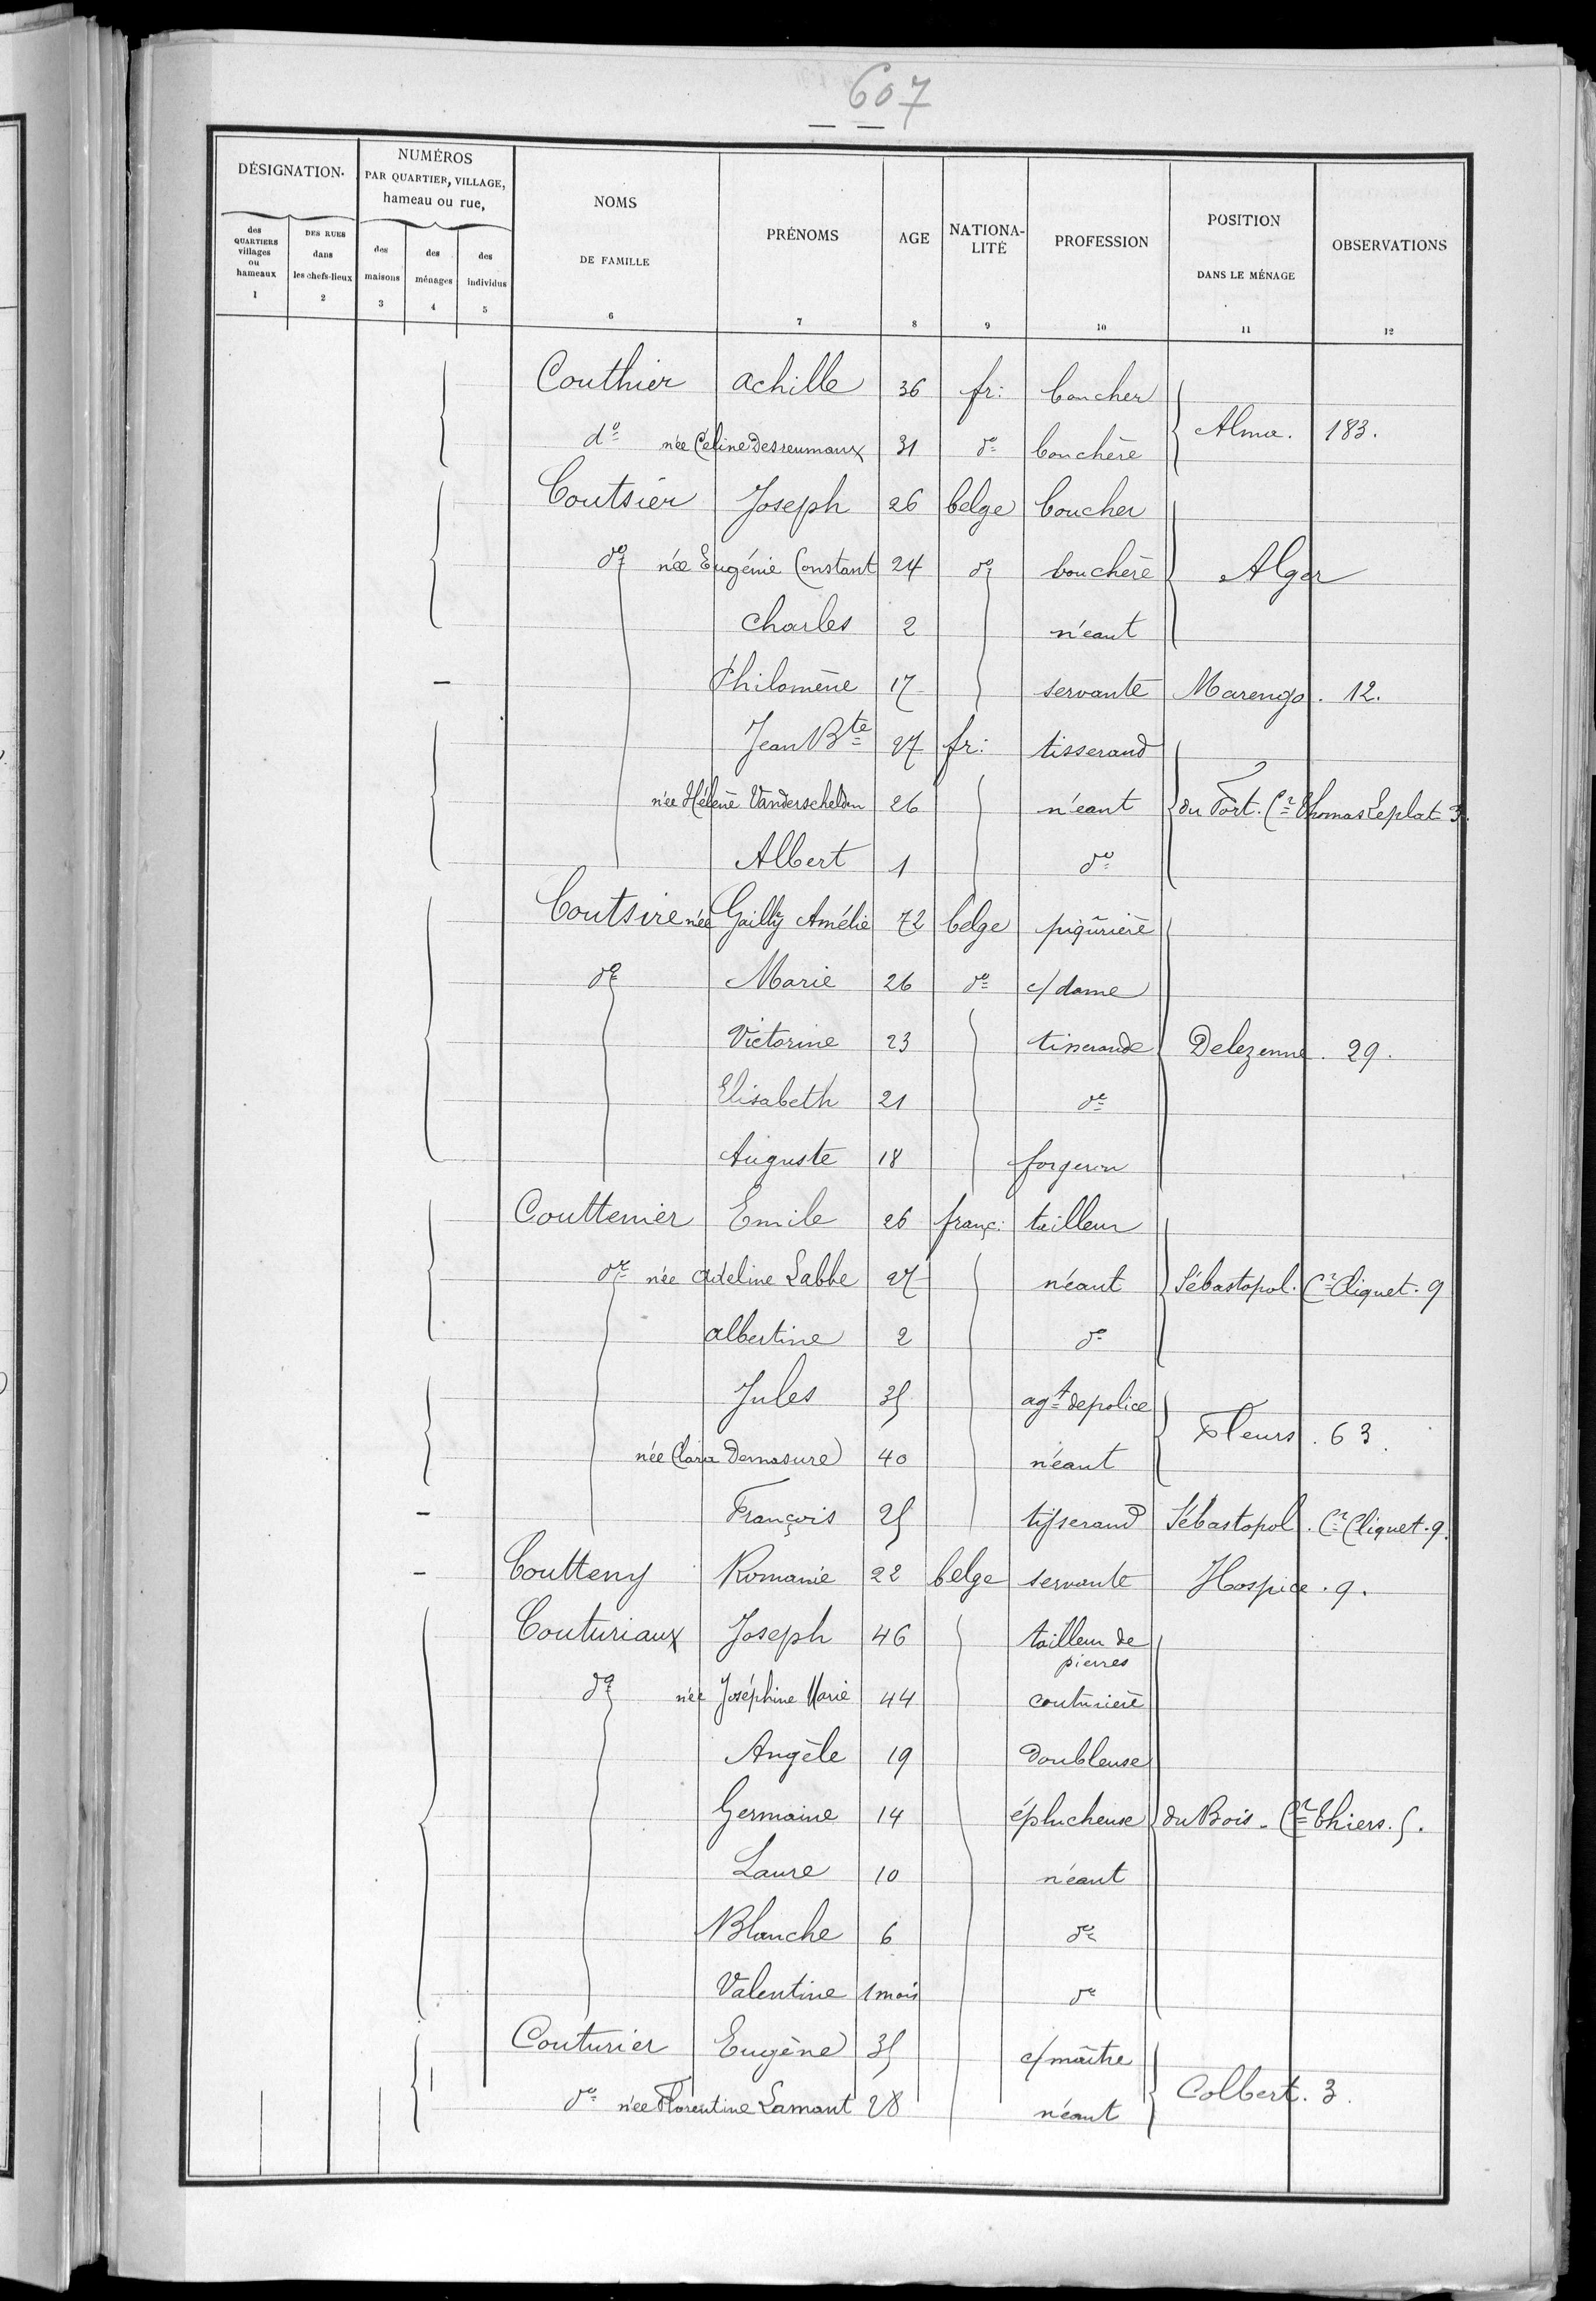 607
DÉSIGNATION.
NUMÉROS
PAR QUARTIER, VILLAGE,
hameau ou rue,
des QUARTIERS villages ou hameaux
DES RUES dans les chefs-lieux
des maisons
des ménages
des individus
NOMS DE FAMILLE
PRÉNOMS
AGE
NATIONA-LITÉ
PROFESSION
POSITION DANS LE MÉNAGE
OBSERVATIONS
1 2 3 4 5 6 7 8 9 10 11 12
Couthier achille 36 fr: boucher
do née Céline Desreumaux 31 do bouchère Alma. 183.
Coutsier Joseph 26 belge boucher
do née Eugénie Constant 24 do bouchère Alger
Charles 2 néant
Philomène 17 servante Marengo. 12.
Jean Bte 27 fr: tisserand
née Hélène Vanderschelden 26 néant du Fort. Cr Thomas Leplat 3.
Albert 1 do
Coutsire née Gailly Amélie 72 belge piqûrière
do Marie 26 do c/ dame
Victorine 23 tisserande Delezenne. 29.
Elisabeth 21 do
Auguste 18 forgeron
Couttenier Emile 26 franç: tailleur
do née adeline Labbe 27 néant Sébastopol. Cr Cliquet. 9
albertine 2 do
Jules 35 agt de police
née Clara Demasure 40 néant Fleurs. 63.
François 25 tisserand Sébastopol. Cr Cliquet. 9.
Coutteny Romanie 22 belge servante Hospice. 9.
Couturiaux Joseph 46 tailleur de
pierres
do née Joséphine Marie 44 couturière
Angèle 19 doubleuse
Germaine 14 éplucheuse du Bois. Cr Thiers. 5.
Laure 10 néant
Blanche 6 do
Valentine 1 mois do
Couturier Eugène 35 c/ maître
do née Florentine Lamant 28 néant Colbert. 3.